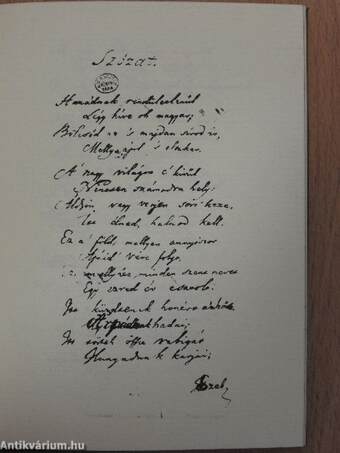 Szózat.
Hazádnak rendületlenűl
Légy híve oh magyar;
Bölcsőd az 's majdan sírod is,
Melly ápol 's eltakar.
A' nagy világon e' kivűl
Nincsen számodra hely;
Áldjon vagy verjen sors keze
Itt élned, halnod kell.
Ez a' föld, mellyen annyiszor
Apáid vére folyt
Ez, mellyhez minden szent nevet
Egy ezred év csatolt.
Itt küzdtenek honért a
hadai;
Itt törtek össze rabigát
Hunyadnak karjai;
Antikvárium.hu